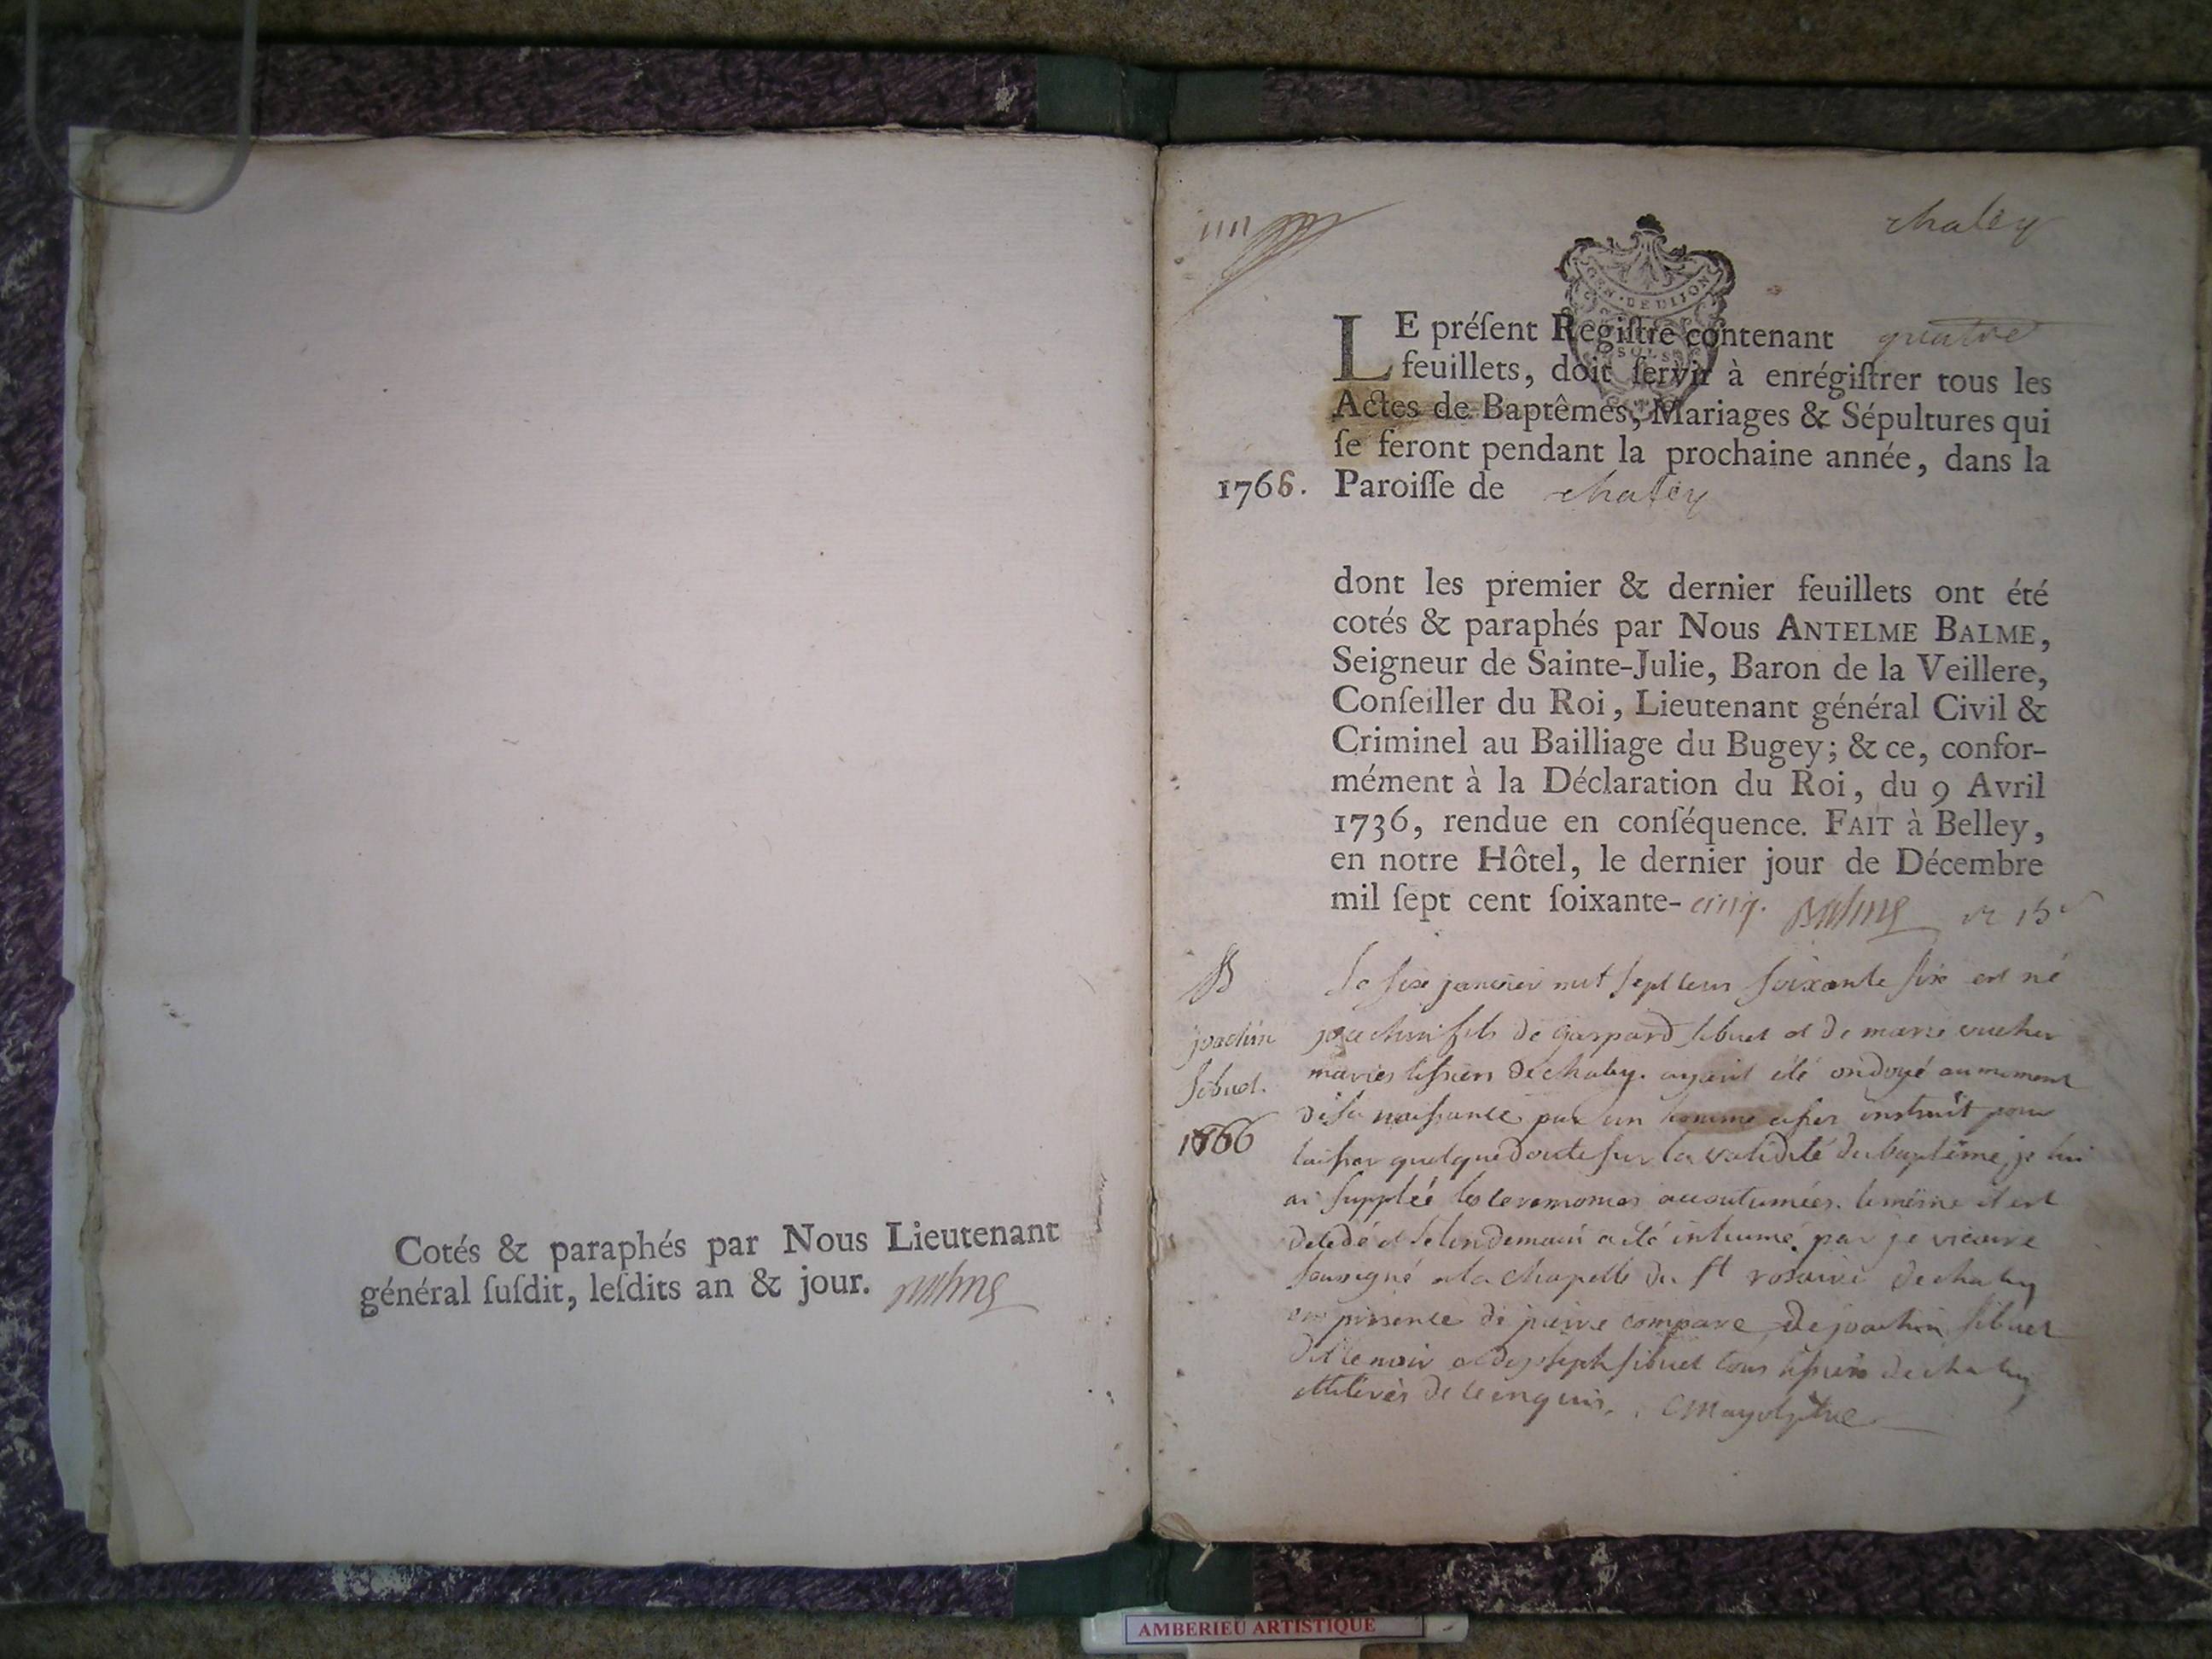 Cotés & paraphés par Nous Lieutenant
général ſuſdit, leſdits an & jour. Balme
chaley
GEN · DE DIJON
SOLS
LE préſent Regiſtre contenant quatre
feuillets, doit ſervir à enrégiſtrer tous les
Actes de Baptêmes, Mariages & Sépultures qui
ſe feront pendant la prochaine année, dans la
1766. Paroiſſe de chaley
dont les premier & dernier feuillets ont été
cotés & paraphés par Nous ANTELME BALME,
Seigneur de Sainte-Julie, Baron de la Veillere,
Conſeiller du Roi, Lieutenant général Civil &
Criminel au Bailliage du Bugey; & ce, confor-
mément à la Déclaration du Roi, du 9 Avril
1736, rendue en conſéquence. FAIT à Belley,
en notre Hôtel, le dernier jour de Décembre
mil ſept cent ſoixante-cinq. Balme
B
joachin
sibuet.
1766
Le six janvier mil sept cent soixante six est né
joachin fils de gaspard sibuet et de marie
mariés de chaley. ayant été ondoyé au moment
de sa naissance par un homme instruit pour
laisser quelque doute sur la validité du baptême, je lui
ai supplée les ceremonies accoutumées. le même il est
decedé et le lendemain a été inhumé par je vicaire
soussigné a la chapelle du st rosaire de chaley
en presence de pierre compare de joachin sibuet
dit le noir et de joseph sibuet tous de chaley
illiterés de ce enquis.